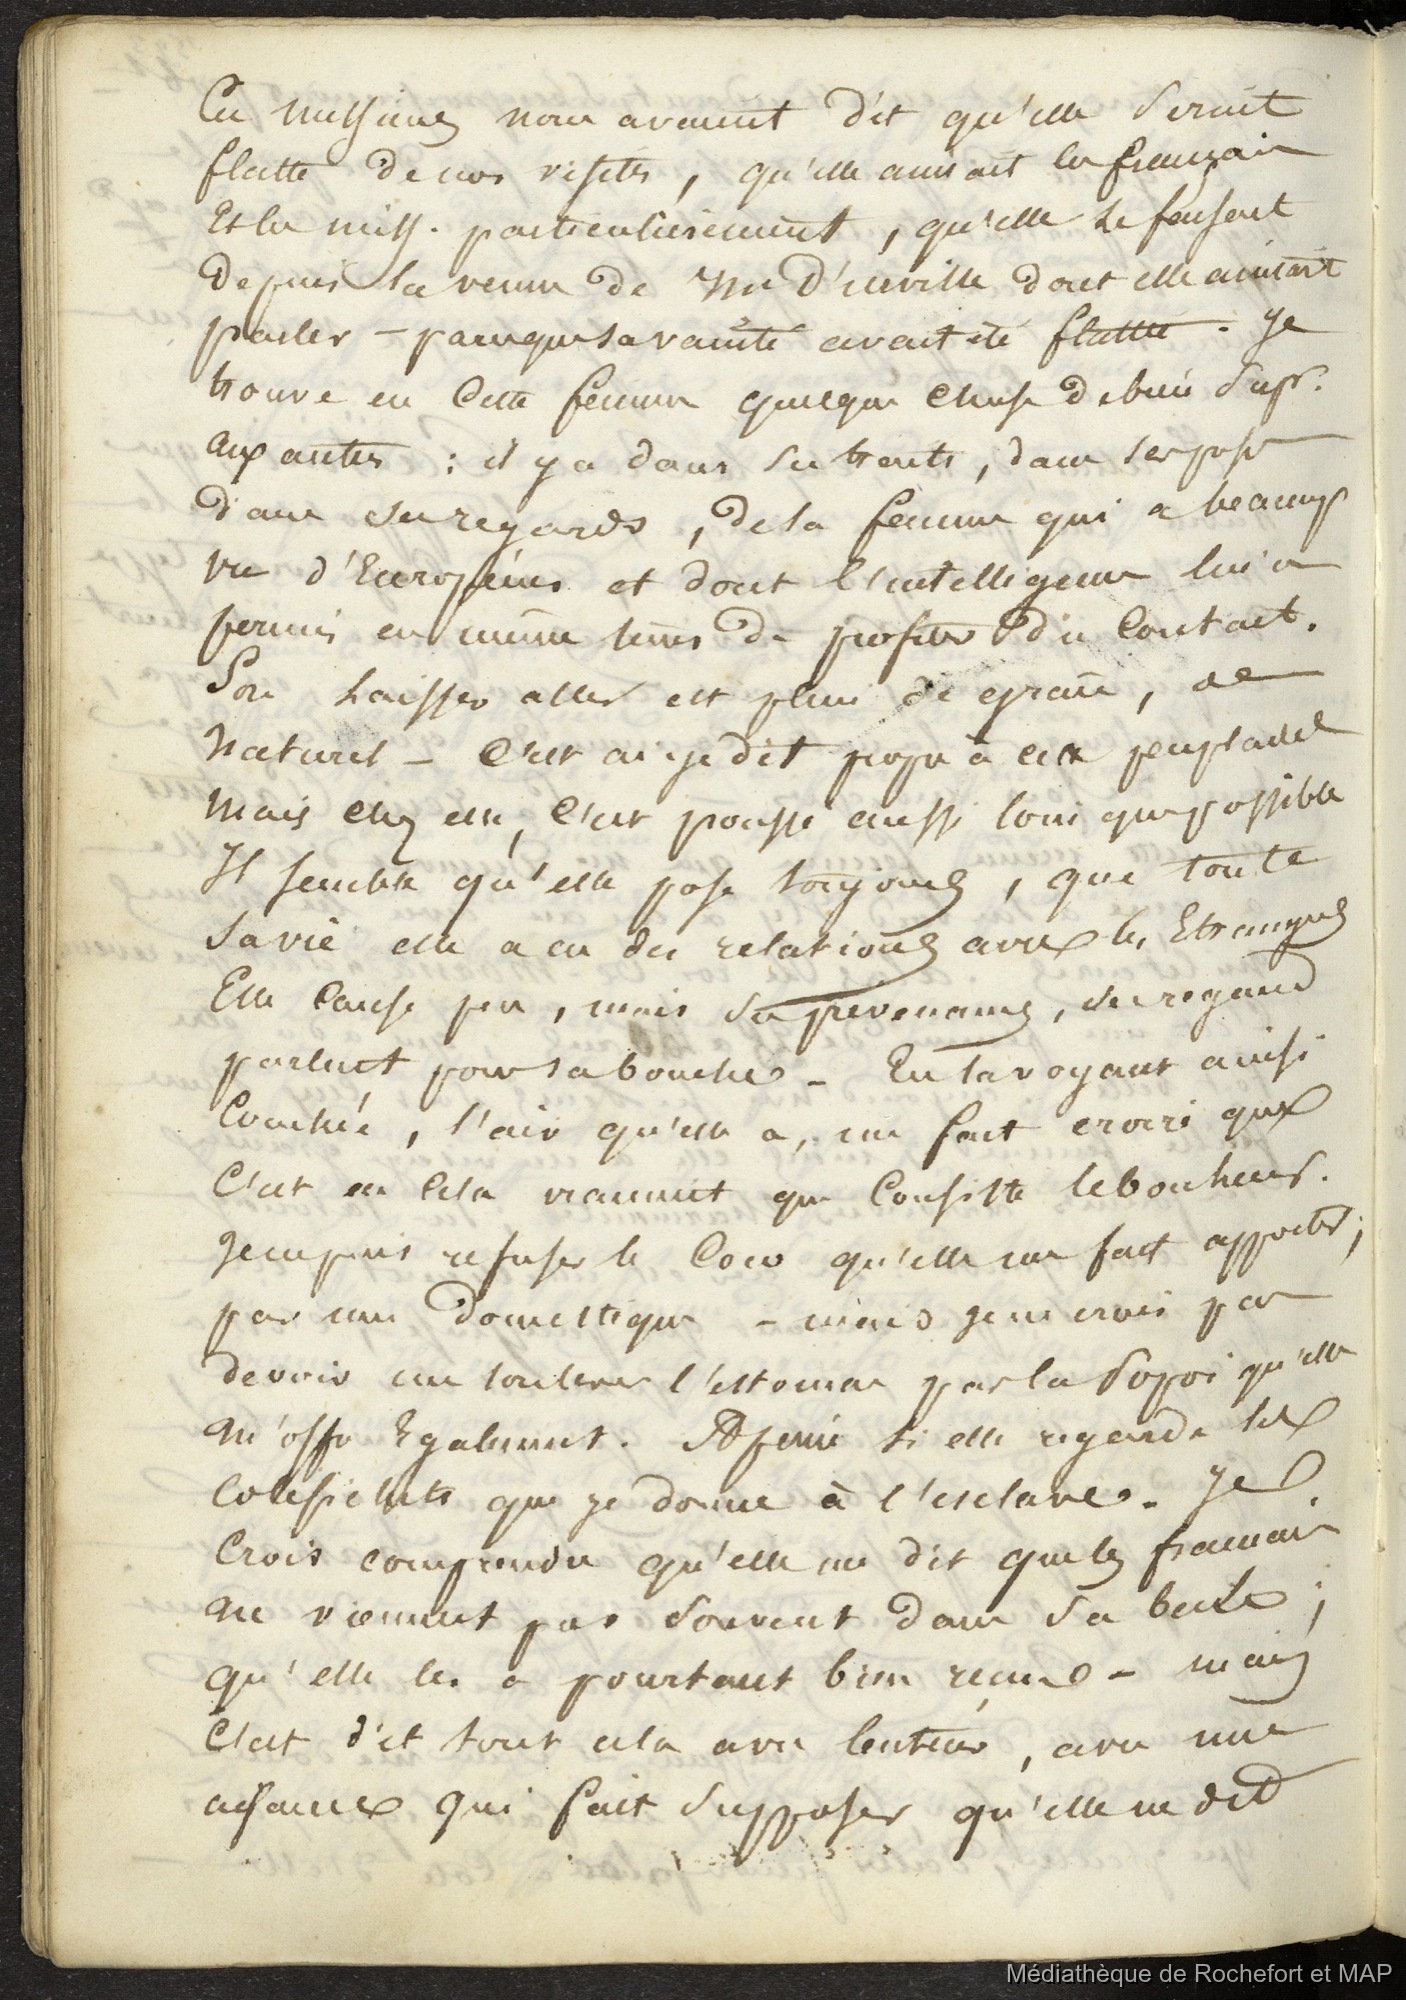 Ces messieurs nous avaient dit qu'elle serait
flattée de nos visites, qu'elle aimait les français
Et les miss. particulièrement, qu'elle se faisait
depuis la venue de Mr D'urville dont elle aimait
parler – parceque sa vanité avait été flattée. Je
trouve en cette femme quelque chose de bien sup.
aux autres : il y a dans ses traits, dans ses poses
dans ses regards, de la femme qui a beaucoup
vu d'Européens et dont l'intelligence lui a
permis en même tems de profiter du contact.
Son laisser aller est plein de grâce, de
naturel – C'est ai-je dit propre à ces peuplades
mais chez elle, c'est poussé aussi loin que possible
Il semble qu'elle pose toujours, que toute
sa vie elle a eu des relations avec les Etrangers
Elle cause peu, mais ses prévenances, ses regards
parlent pour sa bouche – En la voyant ainsi
couchée, l'air qu'elle a, me fait croire que
c'est en cela vraiment que consiste le bonheur.
Je ne puis refuser le coco qu'elle me fait apporter,
par un domestique – mais je ne crois pas
devoir me soulever l'estomac par la Popoi qu'elle
m'offre Egalement. A peine si elle regarde les
colifichets que je donne à l'esclave – Je
crois comprendre qu'elle me dit que les français
ne viennent pas souvent dans sa case ;
qu'elle les a pourtant bien reçus – mais
c'est dit tout cela avec lenteur, avec une
aisance qui fait supposer qu'elle ne dit
Médiathèque de Rochefort et MAP